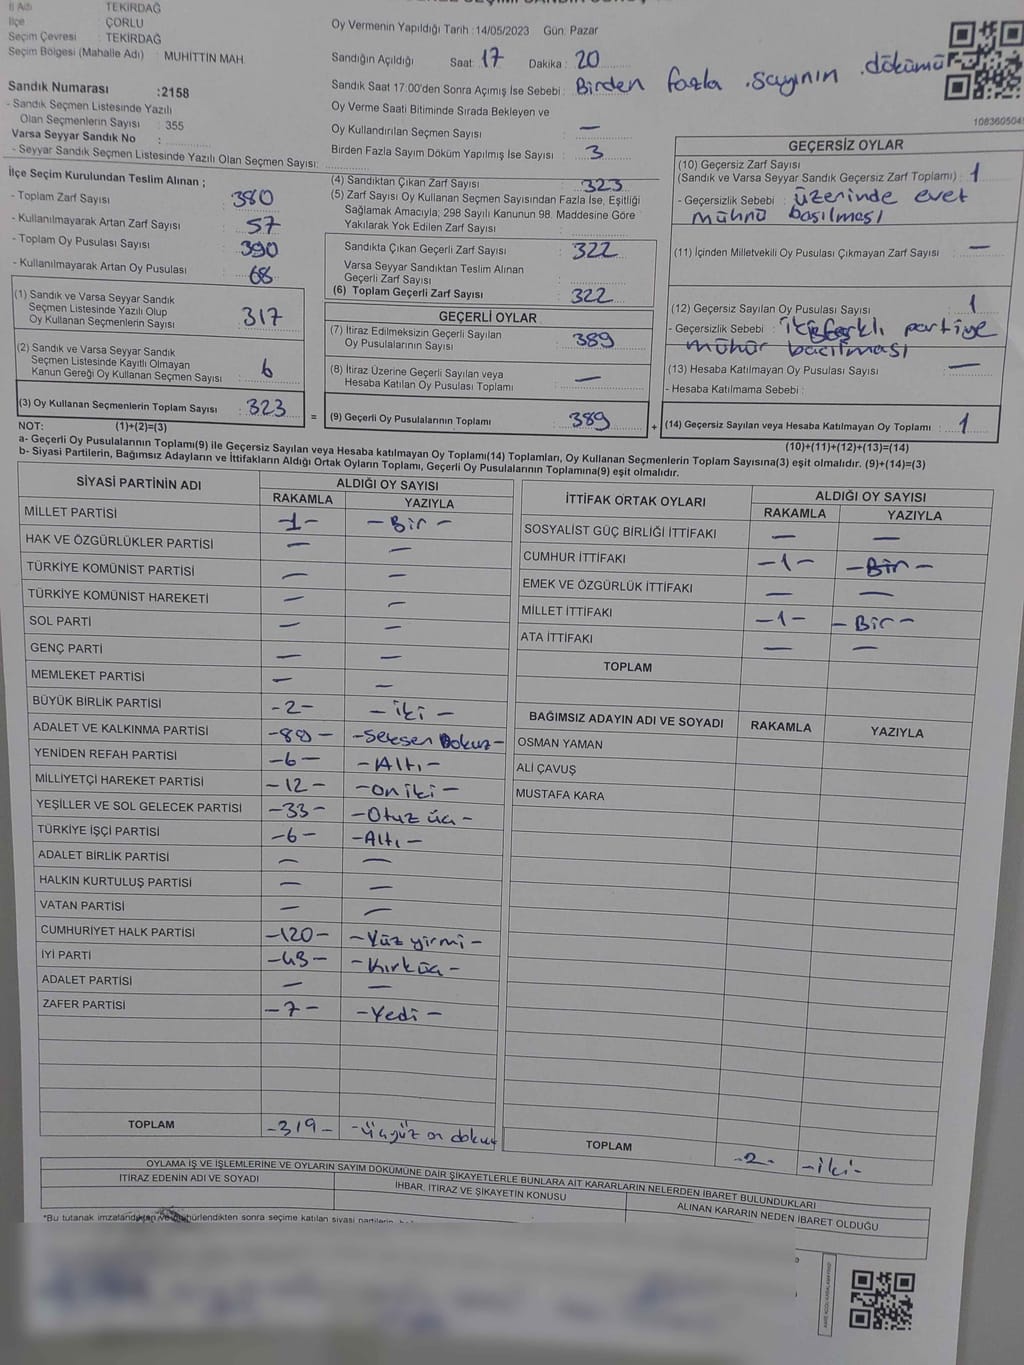 İl Adı TEKİRDAĞ
İlçe ÇORLU
Seçim Çevresi : TEKİRDAĞ
Seçim Bölgesi (Mahalle Adı) : MUHİTTİN MAH.
Sandık Numarası :2158
- Sandık Seçmen Listesinde Yazılı
Olan Seçmenlerin Sayısı : 355
Varsa Seyyar Sandık No :
- Seyyar Sandık Seçmen Listesinde Yazılı Olan Seçmen Sayısı:
Oy Vermenin Yapıldığı Tarih :14/05/2023 Gün: Pazar
Sandığın Açıldığı Saat: 17 Dakika : 20
Sandık Saat 17:00'den Sonra Açımış İse Sebebi : Birden fazla sayının dökümü
Oy Verme Saati Bitiminde Sırada Bekleyen ve
Oy Kullandırılan Seçmen Sayısı : —
Birden Fazla Sayım Döküm Yapılmış İse Sayısı : 3
108360504
İlçe Seçim Kurulundan Teslim Alınan ;
- Toplam Zarf Sayısı : 380
- Kullanılmayarak Artan Zarf Sayısı : 57
- Toplam Oy Pusulası Sayısı : 390
- Kullanılmayarak Artan Oy Pusulası : 68
(1) Sandık ve Varsa Seyyar Sandık
Seçmen Listesinde Yazılı Olup
Oy Kullanan Seçmenlerin Sayısı : 317
(2) Sandık ve Varsa Seyyar Sandık
Seçmen Listesinde Kayıtlı Olmayan
Kanun Gereği Oy Kullanan Seçmen Sayısı : 6
(3) Oy Kullanan Seçmenlerin Toplam Sayısı : 323
(4) Sandıktan Çıkan Zarf Sayısı : 323
(5) Zarf Sayısı Oy Kullanan Seçmen Sayısından Fazla İse, Eşitliği
Sağlamak Amacıyla; 298 Sayılı Kanunun 98. Maddesine Göre
Yakılarak Yok Edilen Zarf Sayısı :
Sandıkta Çıkan Geçerli Zarf Sayısı : 322
Varsa Seyyar Sandıktan Teslim Alınan
Geçerli Zarf Sayısı :
(6) Toplam Geçerli Zarf Sayısı : 322
GEÇERLİ OYLAR
(7) İtiraz Edilmeksizin Geçerli Sayılan
Oy Pusulalarının Sayısı : 389
(8) İtiraz Üzerine Geçerli Sayılan veya
Hesaba Katılan Oy Pusulası Toplamı : —
= (9) Geçerli Oy Pusulalarının Toplamı : 389
GEÇERSİZ OYLAR
(10) Geçersiz Zarf Sayısı
(Sandık ve Varsa Seyyar Sandık Geçersiz Zarf Toplamı) : 1
- Geçersizlik Sebebi : üzerinde evet
mührü basılması
(11) İçinden Milletvekili Oy Pusulası Çıkmayan Zarf Sayısı : —
(12) Geçersiz Sayılan Oy Pusulası Sayısı : 1
- Geçersizlik Sebebi : iki farklı partiye
mühür basılması
(13) Hesaba Katılmayan Oy Pusulası Sayısı : —
- Hesaba Katılmama Sebebi :
+ (14) Geçersiz Sayılan veya Hesaba Katılmayan Oy Toplamı : 1
NOT: (1)+(2)=(3) (10)+(11)+(12)+(13)=(14)
a- Geçerli Oy Pusulalarının Toplamı(9) ile Geçersiz Sayılan veya Hesaba katılmayan Oy Toplamı(14) Toplamları, Oy Kullanan Seçmenlerin Toplam Sayısına(3) eşit olmalıdır. (9)+(14)=(3)
b- Siyasi Partilerin, Bağımsız Adayların ve İttifakların Aldığı Ortak Oyların Toplamı, Geçerli Oy Pusulalarının Toplamına(9) eşit olmalıdır.
SİYASİ PARTİNİN ADI ALDIĞI OY SAYISI
RAKAMLA YAZIYLA
MİLLET PARTİSİ -1- -Bir-
HAK VE ÖZGÜRLÜKLER PARTİSİ — —
TÜRKİYE KOMÜNİST PARTİSİ — —
TÜRKİYE KOMÜNİST HAREKETİ — —
SOL PARTİ — —
GENÇ PARTİ — —
MEMLEKET PARTİSİ — —
BÜYÜK BİRLİK PARTİSİ -2- -iki-
ADALET VE KALKINMA PARTİSİ -89- -Seksen Dokuz-
YENİDEN REFAH PARTİSİ -6- -Altı-
MİLLİYETÇİ HAREKET PARTİSİ -12- -on iki-
YEŞİLLER VE SOL GELECEK PARTİSİ -33- -Otuz üç-
TÜRKİYE İŞÇİ PARTİSİ -6- -Altı-
ADALET BİRLİK PARTİSİ — —
HALKIN KURTULUŞ PARTİSİ — —
VATAN PARTİSİ — —
CUMHURİYET HALK PARTİSİ -120- -Yüz yirmi-
İYİ PARTİ -43- -Kırküç-
ADALET PARTİSİ — —
ZAFER PARTİSİ -7- -Yedi-
TOPLAM -319- -üçyüz on dokuz
İTTİFAK ORTAK OYLARI ALDIĞI OY SAYISI
RAKAMLA YAZIYLA
SOSYALİST GÜÇ BİRLİĞİ İTTİFAKI — —
CUMHUR İTTİFAKI -1- -Bir-
EMEK VE ÖZGÜRLÜK İTTİFAKI — —
MİLLET İTTİFAKI -1- -Bir-
ATA İTTİFAKI — —
TOPLAM
BAĞIMSIZ ADAYIN ADI VE SOYADI RAKAMLA YAZIYLA
OSMAN YAMAN
ALİ ÇAVUŞ
MUSTAFA KARA
TOPLAM -2- -iki-
OYLAMA İŞ VE İŞLEMLERINE VE OYLARIN SAYIM DÖKÜMÜNE DAİR ŞİKAYETLERLE BUNLARA AİT KARARLARIN NELERDEN İBARET BULUNDUKLARI
İTİRAZ EDENİN ADI VE SOYADI İHBAR, İTİRAZ VE ŞİKAYETİN KONUSU ALINAN KARARIN NEDEN İBARET OLDUĞU
*Bu tutanak imzalandıktan ve mühürlendikten sonra seçime katılan siyasi partilerin